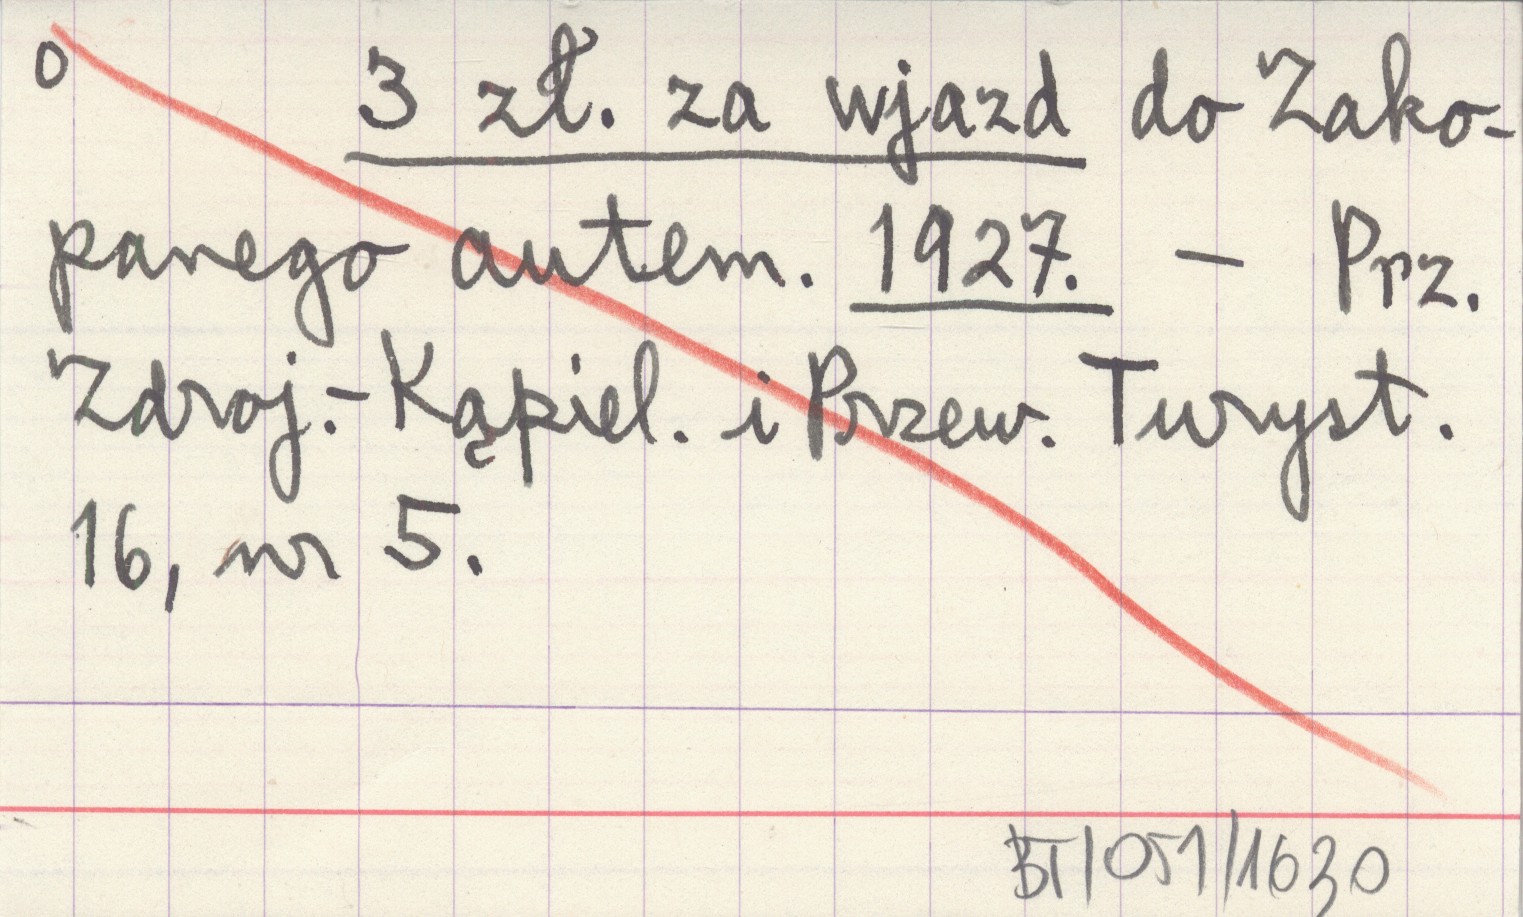 0 3 zł. za wjazd do Zako-
panego autem. 1927. - Prz.
Zdroj.-Kąpiel. i Przew. Turyst.
16, nr 5.
BT/051/1630